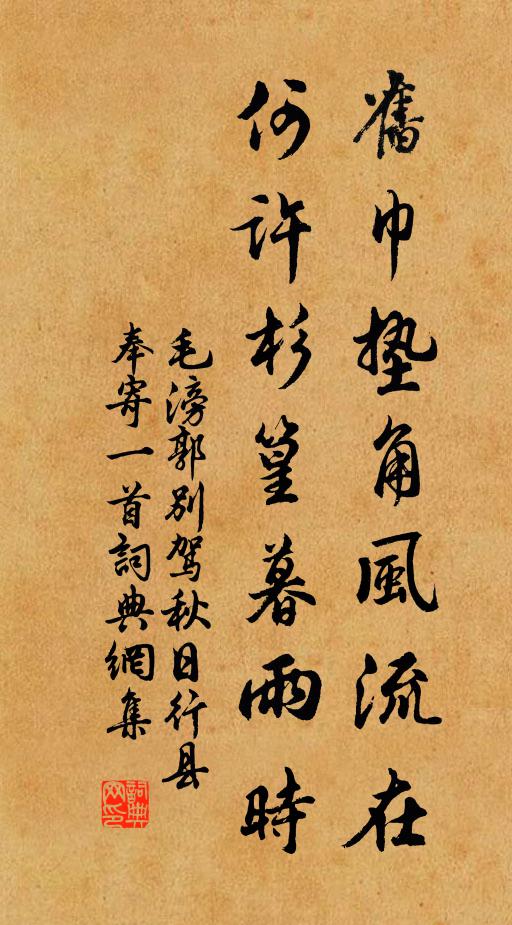 舊巾墊角風流在
何許杉篁暮雨時
毛滂郭別駕秋日行县
奉寄一首詞典網集
詞典网印